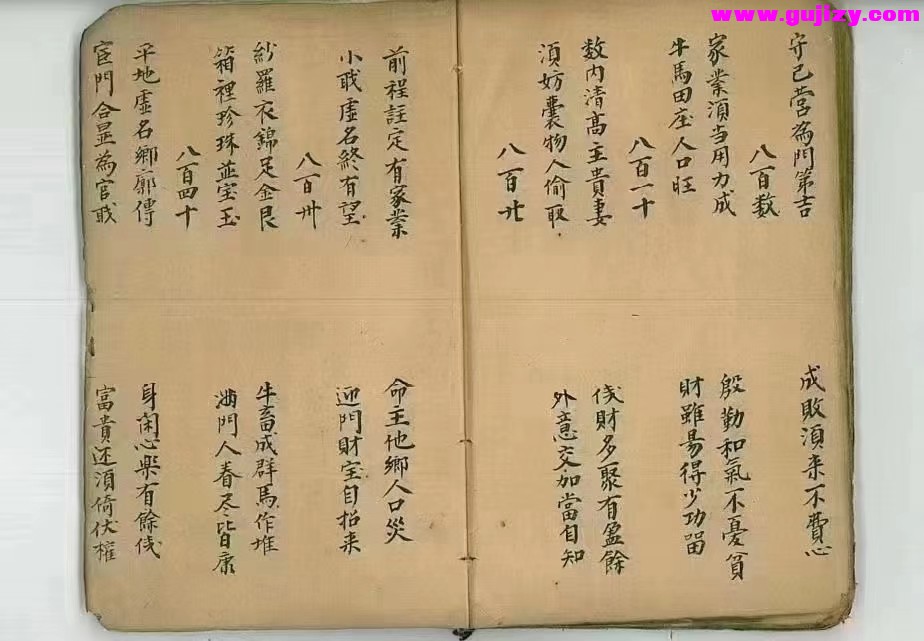 www.gujizy.com
守己營為門第吉　成敗湏来不費心
八百数
家業湏当用力成　殷勤和氣不憂貧
牛馬田庄人口旺　財雖易得少功留
八百一十
数内清高主貴妻　俴財多聚有盈餘
湏妨囊物人偷取　外意交加當自知
八百廿
前程註定有家業　命主他鄉人口災
小戢虚名終有望　迎門財宝自招来
八百卅
紗羅衣錦足金艮　牛畜成群馬作堆
箱裡珍珠並宝玉　滿門人眷尽皆康
八百四十
平地虚名鄉廓傳　身闲心樂有餘俴
宦門合是為官戢　富貴还湏倚伏權